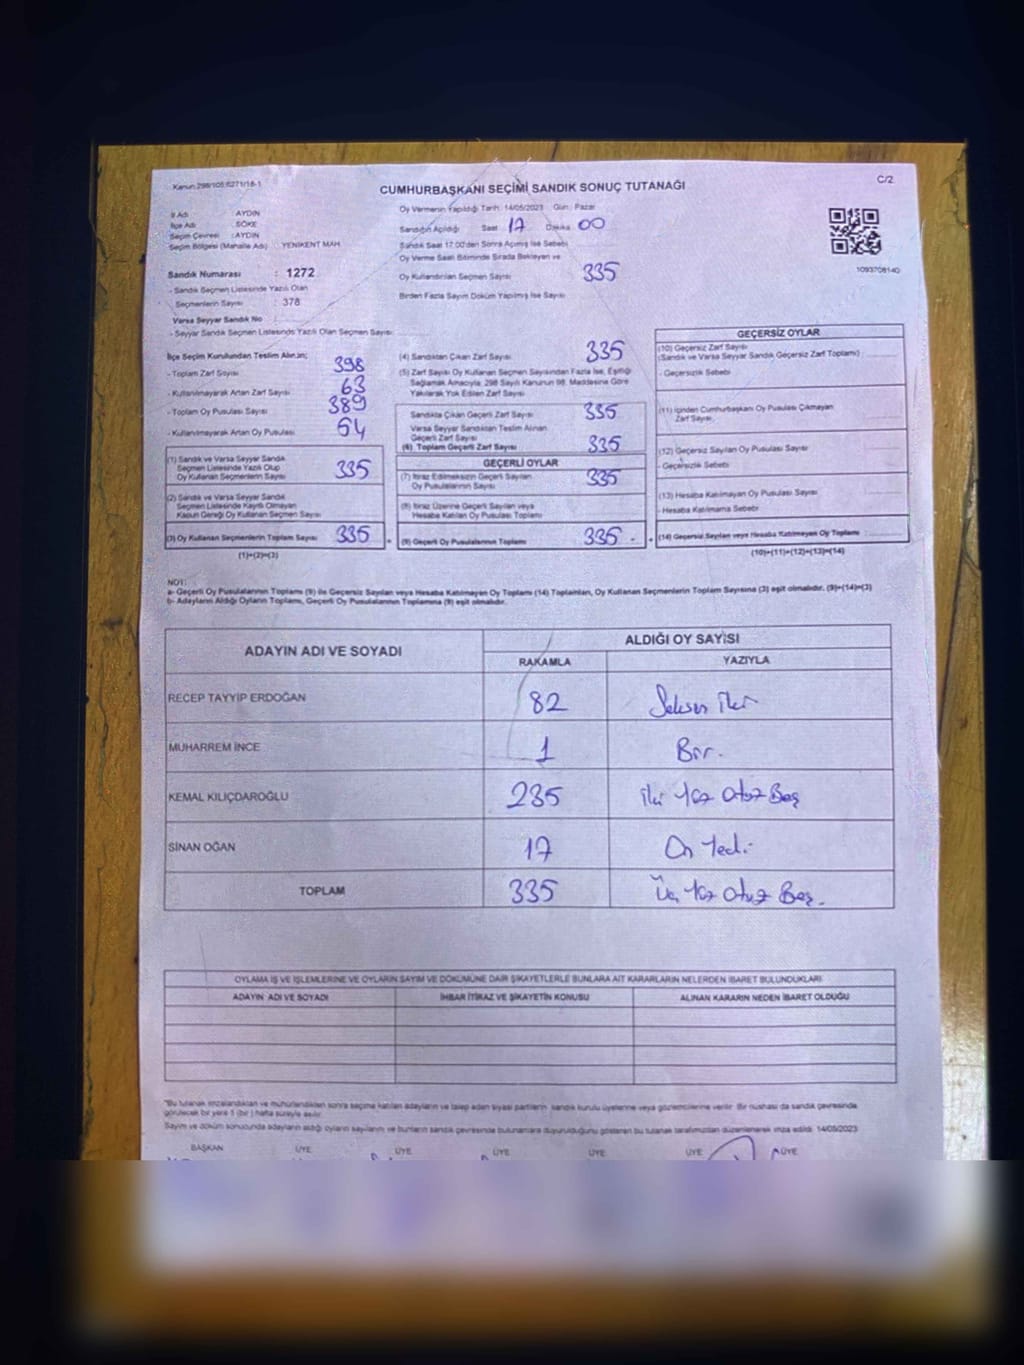 Kanun:298/105;6271/18-1
CUMHURBAŞKANI SEÇİMİ SANDIK SONUÇ TUTANAĞI
C/2
İl Adı AYDIN
İlçe Adı SÖKE
Seçim Çevresi :AYDIN
Seçim Bölgesi (Mahalle Adı) : YENİKENT MAH.
Oy Vermenin Yapıldığı Tarih: 14/05/2023 Gün: Pazar
Sandığın Açıldığı Saat 17 Dakika 00
Sandık Saat 17:00'den Sonra Açılmış İse Sebebi
Oy Verme Saati Bitiminde Sırada Bekleyen ve
Oy Kullandırılan Seçmen Sayısı 335
Birden Fazla Sayım Döküm Yapılmış İse Sayısı
1093708140
Sandık Numarası : 1272
- Sandık Seçmen Listesinde Yazılı Olan
Seçmenlerin Sayısı : 378
Varsa Seyyar Sandık No
- Seyyar Sandık Seçmen Listesinde Yazılı Olan Seçmen Sayısı:
İlçe Seçim Kurulundan Teslim Alınan;
- Toplam Zarf Sayısı 398
- Kullanılmayarak Artan Zarf Sayısı 63
- Toplam Oy Pusulası Sayısı 389
- Kullanılmayarak Artan Oy Pusulası 54
(1) Sandık ve Varsa Seyyar Sandık
Seçmen Listesinde Yazılı Olup
Oy Kullanan Seçmenlerin Sayısı 335
(2) Sandık ve Varsa Seyyar Sandık
Seçmen Listesinde Kayıtlı Olmayan
Kanun Gereği Oy Kullanan Seçmen Sayısı
(3) Oy Kullanan Seçmenlerin Toplam Sayısı 335
(1)+(2)=(3)
(4) Sandıktan Çıkan Zarf Sayısı 335
(5) Zarf Sayısı Oy Kullanan Seçmen Sayısından Fazla İse, Eşitliği
Sağlamak Amacıyla, 298 Sayılı Kanunun 98. Maddesine Göre
Yakılarak Yok Edilen Zarf Sayısı
Sandıkta Çıkan Geçerli Zarf Sayısı 335
Varsa Seyyar Sandıktan Teslim Alınan
Geçerli Zarf Sayısı
(6) Toplam Geçerli Zarf Sayısı 335
GEÇERLİ OYLAR
(7) İtiraz Edilmeksizin Geçerli Sayılan
Oy Pusulalarının Sayısı 335
(8) İtiraz Üzerine Geçerli Sayılan veya
Hesaba Katılan Oy Pusulası Toplamı
(9) Geçerli Oy Pusulalarının Toplamı 335
GEÇERSİZ OYLAR
(10) Geçersiz Zarf Sayısı
(Sandık ve Varsa Seyyar Sandık Geçersiz Zarf Toplamı)
- Geçersizlik Sebebi
(11) İçinden Cumhurbaşkanı Oy Pusulası Çıkmayan
Zarf Sayısı
(12) Geçersiz Sayılan Oy Pusulası Sayısı
- Geçersizlik Sebebi
(13) Hesaba Katılmayan Oy Pusulası Sayısı
- Hesaba Katılmama Sebebi
(14) Geçersiz Sayılan veya Hesaba Katılmayan Oy Toplamı
(10)+(11)+(12)+(13)=(14)
NOT:
a- Geçerli Oy Pusulalarının Toplamı (9) ile Geçersiz Sayılan veya Hesaba Katılmayan Oy Toplamı (14) Toplamları, Oy Kullanan Seçmenlerin Toplam Sayısına (3) eşit olmalıdır. (9)+(14)=(3)
b- Adayların Aldığı Oyların Toplamı, Geçerli Oy Pusulalarının Toplamına (9) eşit olmalıdır.
ADAYIN ADI VE SOYADI
ALDIĞI OY SAYISI
RAKAMLA YAZIYLA
RECEP TAYYİP ERDOĞAN 82 Seksen iki
MUHARREM İNCE 1 Bir.
KEMAL KILIÇDAROĞLU 235 İki Yüz Otuz Beş
SİNAN OĞAN 17 On Yedi
TOPLAM 335 Üç Yüz Otuz Beş.
OYLAMA İŞ VE İŞLEMLERİNE VE OYLARIN SAYIM VE DÖKÜMÜNE DAİR ŞİKAYETLERLE BUNLARA AİT KARARLARIN NELERDEN İBARET BULUNDUKLARI
ADAYIN ADI VE SOYADI İHBAR İTİRAZ VE ŞİKAYETİN KONUSU ALINAN KARARIN NEDEN İBARET OLDUĞU
*Bu tutanak imzalandıktan ve mühürlendikten sonra seçime katılan adayların ve talep eden siyasi partilerin sandık kurulu üyelerine veya gözlemcilerine verilir. Bir nüshası da sandık çevresinde
görülecek bir yere 1 (bir) hafta süreyle asılır.
Sayım ve döküm sonucunda adayların aldığı oyların sayılarını ve bunların sandık çevresinde bulunanlara duyurulduğunu gösteren bu tutanak tarafımızdan düzenlenerek imza edildi. 14/05/2023
BAŞKAN ÜYE ÜYE ÜYE ÜYE ÜYE ÜYE